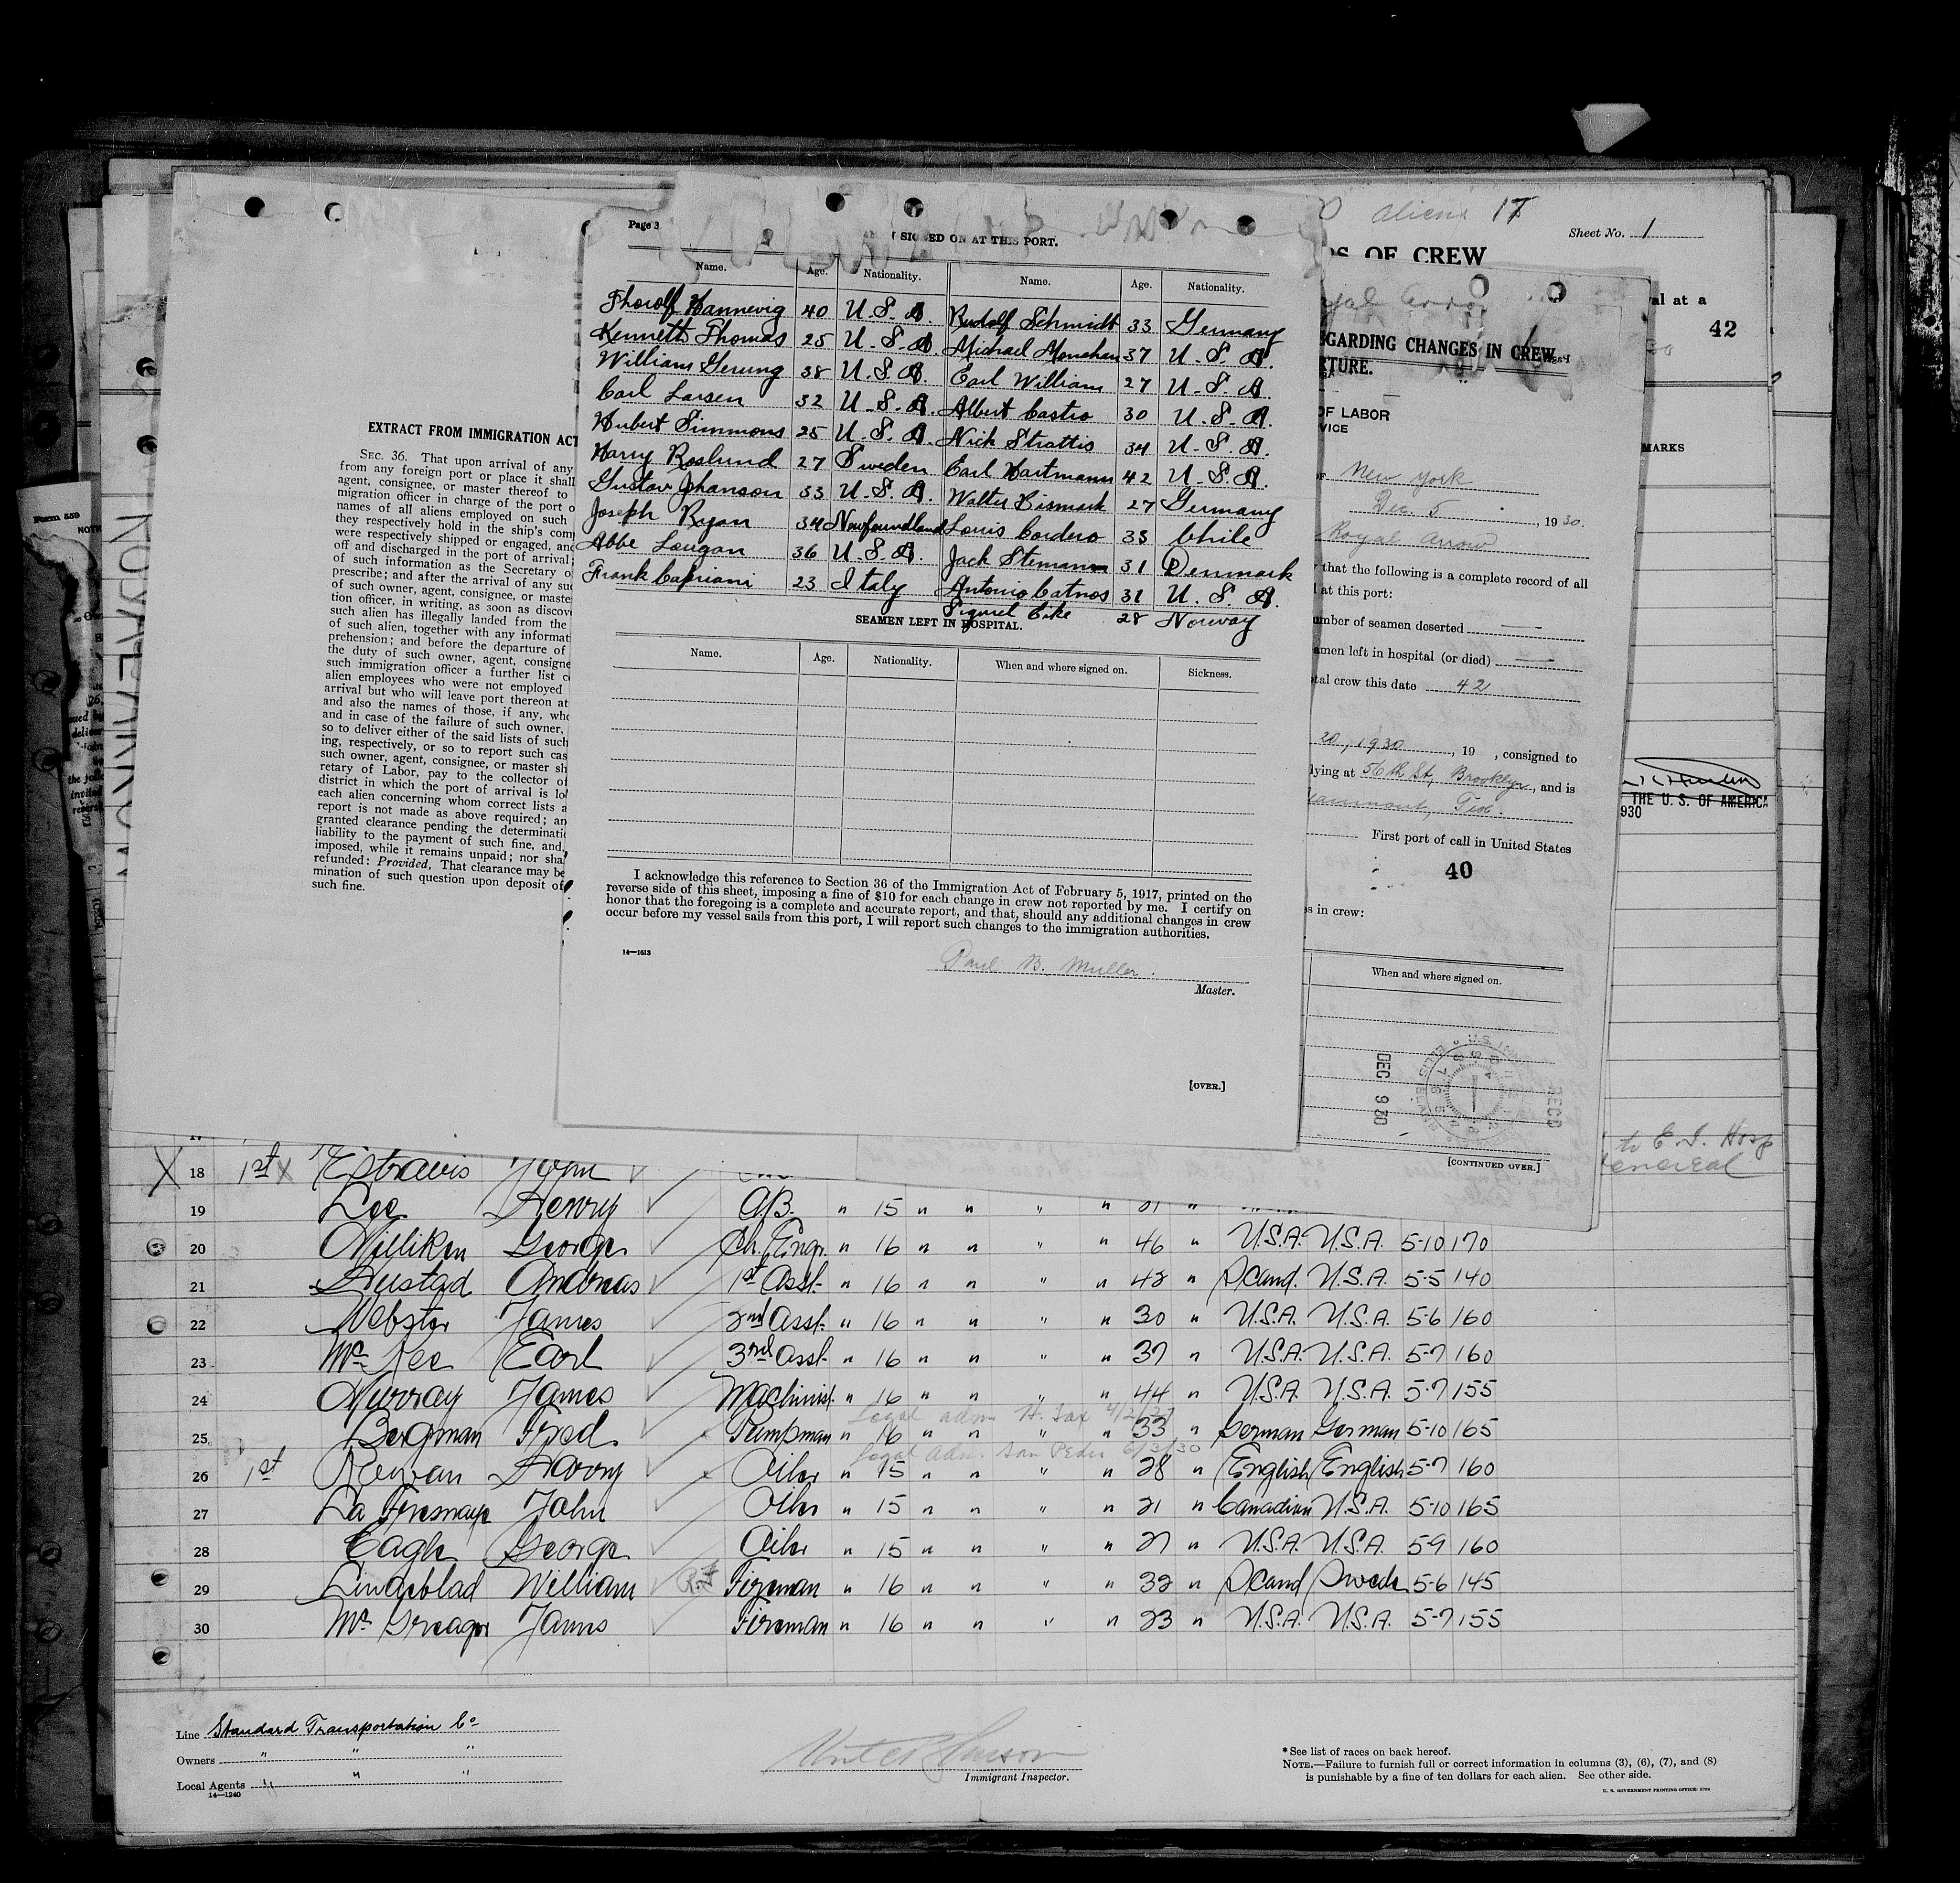 aliens 17
Sheet No. 1
OF CREW
42
MARKS
EXTRACT FROM IMMIGRATION ACT
SEC. 36. That upon arrival of any
from any foreign port or place it shall
agent, consignee, or master thereof to
migration officer in charge of the port o
names of all aliens employed on such
they respectively hold in the ship's com
were respectively shipped or engaged, and
off and discharged in the port of arrival;
of such information as the Secretary o
prescribe; and after the arrival of any su
of such owner, agent, consignee, or maste
tion officer, in writing, as soon as discov
such alien has illegally landed from the
of such alien, together with any informati
prehension; and before the departure of
the duty of such owner, agent, consigne
such immigration officer a further list c
alien employees who were not employed
arrival but who will leave port thereon at
and also the names of those, if any, who
and in case of the failure of such owner,
so to deliver either of the said lists of such
ing, respectively, or so to report such cas
such owner, agent, consignee, or master sh
retary of Labor, pay to the collector of
district in which the port of arrival is lo
each alien concerning whom correct lists a
report is not made as above required; an
granted clearance pending the determinati
liability to the payment of such fine, and,
imposed, while it remains unpaid; nor sha
refunded: Provided, That clearance may be
mination of such question upon deposit of
such fine.
Form 559
Page 3
SIGNED ON AT THIS PORT.
Name. Age. Nationality. Name. Age. Nationality.
Thorolf Hannevig 40 U.S.A. Rudolf Schmidt 33 Germany
Kenneth Thomas 25 U.S.A. Michael Monahan 37 U.S.A.
William Gerung 38 U.S.A. Earl William 27 U.S.A.
Carl Larsen 32 U.S.A. Albert Castro 30 U.S.A.
Hubert Simmons 25 U.S.A. Nick Strattis 34 U.S.A.
Harry Roslund 27 Sweden Earl Hartmann 42 U.S.A.
Gustav Johanson 33 U.S.A. Walter Bismark 27 Germany
Joseph Ryan 34 Newfoundland Louis Cordero 35 Chile
Abbe Lougan 36 U.S.A. Jack Stemann 31 Denmark
Frank Capriani 23 Italy Antonio Catnos 31 U.S.A.
Sigurd Eike 28 Norway
SEAMEN LEFT IN HOSPITAL.
Name. Age. Nationality. When and where signed on. Sickness.
I acknowledge this reference to Section 36 of the Immigration Act of February 5, 1917, printed on the
reverse side of this sheet, imposing a fine of $10 for each change in crew not reported by me. I certify on
honor that the foregoing is a complete and accurate report, and that, should any additional changes in crew
occur before my vessel sails from this port, I will report such changes to the immigration authorities.
14—1613
Paul B. Muller.
Master.
[OVER.]
EGARDING CHANGES IN CREW
TURE.
OF LABOR
VICE
New York
Dec. 5, 1930.
Royal Arrow
that the following is a complete record of all
at this port:
umber of seamen deserted —
amen left in hospital (or died) —
tal crew this date 42
20, 1930, 19 , consigned to
lying at 56th St, Brooklyn, and is
eaumont, Tex.
First port of call in United States
40
s in crew:
When and where signed on.
DEC 9 30
RECD
[CONTINUED OVER.]
THE U. S. OF AMERICA
930
to E. I. Hosp
venereal
X 18 1st X Estravis John
19 Lee Henry A.B. " 15 " " " " 21 "
20 Milliken George Ch. Engr. " 16 " " " " 46 " U.S.A. U.S.A. 5-10 170
21 Austad Andreas 1st Asst. " 16 " " " " 42 " Scand. U.S.A. 5-5 140
22 Webster James 2nd Asst. " 16 " " " " 30 " U.S.A. U.S.A. 5-6 160
23 McKee Earl 3rd Asst. " 16 " " " " 37 " U.S.A. U.S.A. 5-7 160
24 Murray James Machinist " 16 " " " " 44 " U.S.A. U.S.A. 5-7 155
25 Bergman Fred Pumpman " 16 " " " " 33 " German German 5-10 165
Legal adm. San Pedro 6/3/30
26 1st Rowan Harry Oiler " 15 " " " " 28 " English English 5-7 160
27 La Fresnaye John Oiler " 15 " " " " 21 " Canadian U.S.A. 5-10 165
28 Eagle George Oiler " 15 " " " " 27 " U.S.A. U.S.A. 5-9 160
29 Lindeblad William Fireman " 16 " " " " 32 " Scand Swede 5-6 145
30 McGreagor James Fireman " 16 " " " " 23 " U.S.A. U.S.A. 5-7 155
Line Standard Transportation Co
Owners " " "
Local Agents " " "
14—1240
Immigrant Inspector.
*See list of races on back hereof.
NOTE.—Failure to furnish full or correct information in columns (3), (6), (7), and (8)
is punishable by a fine of ten dollars for each alien. See other side.
U. S. GOVERNMENT PRINTING OFFICE